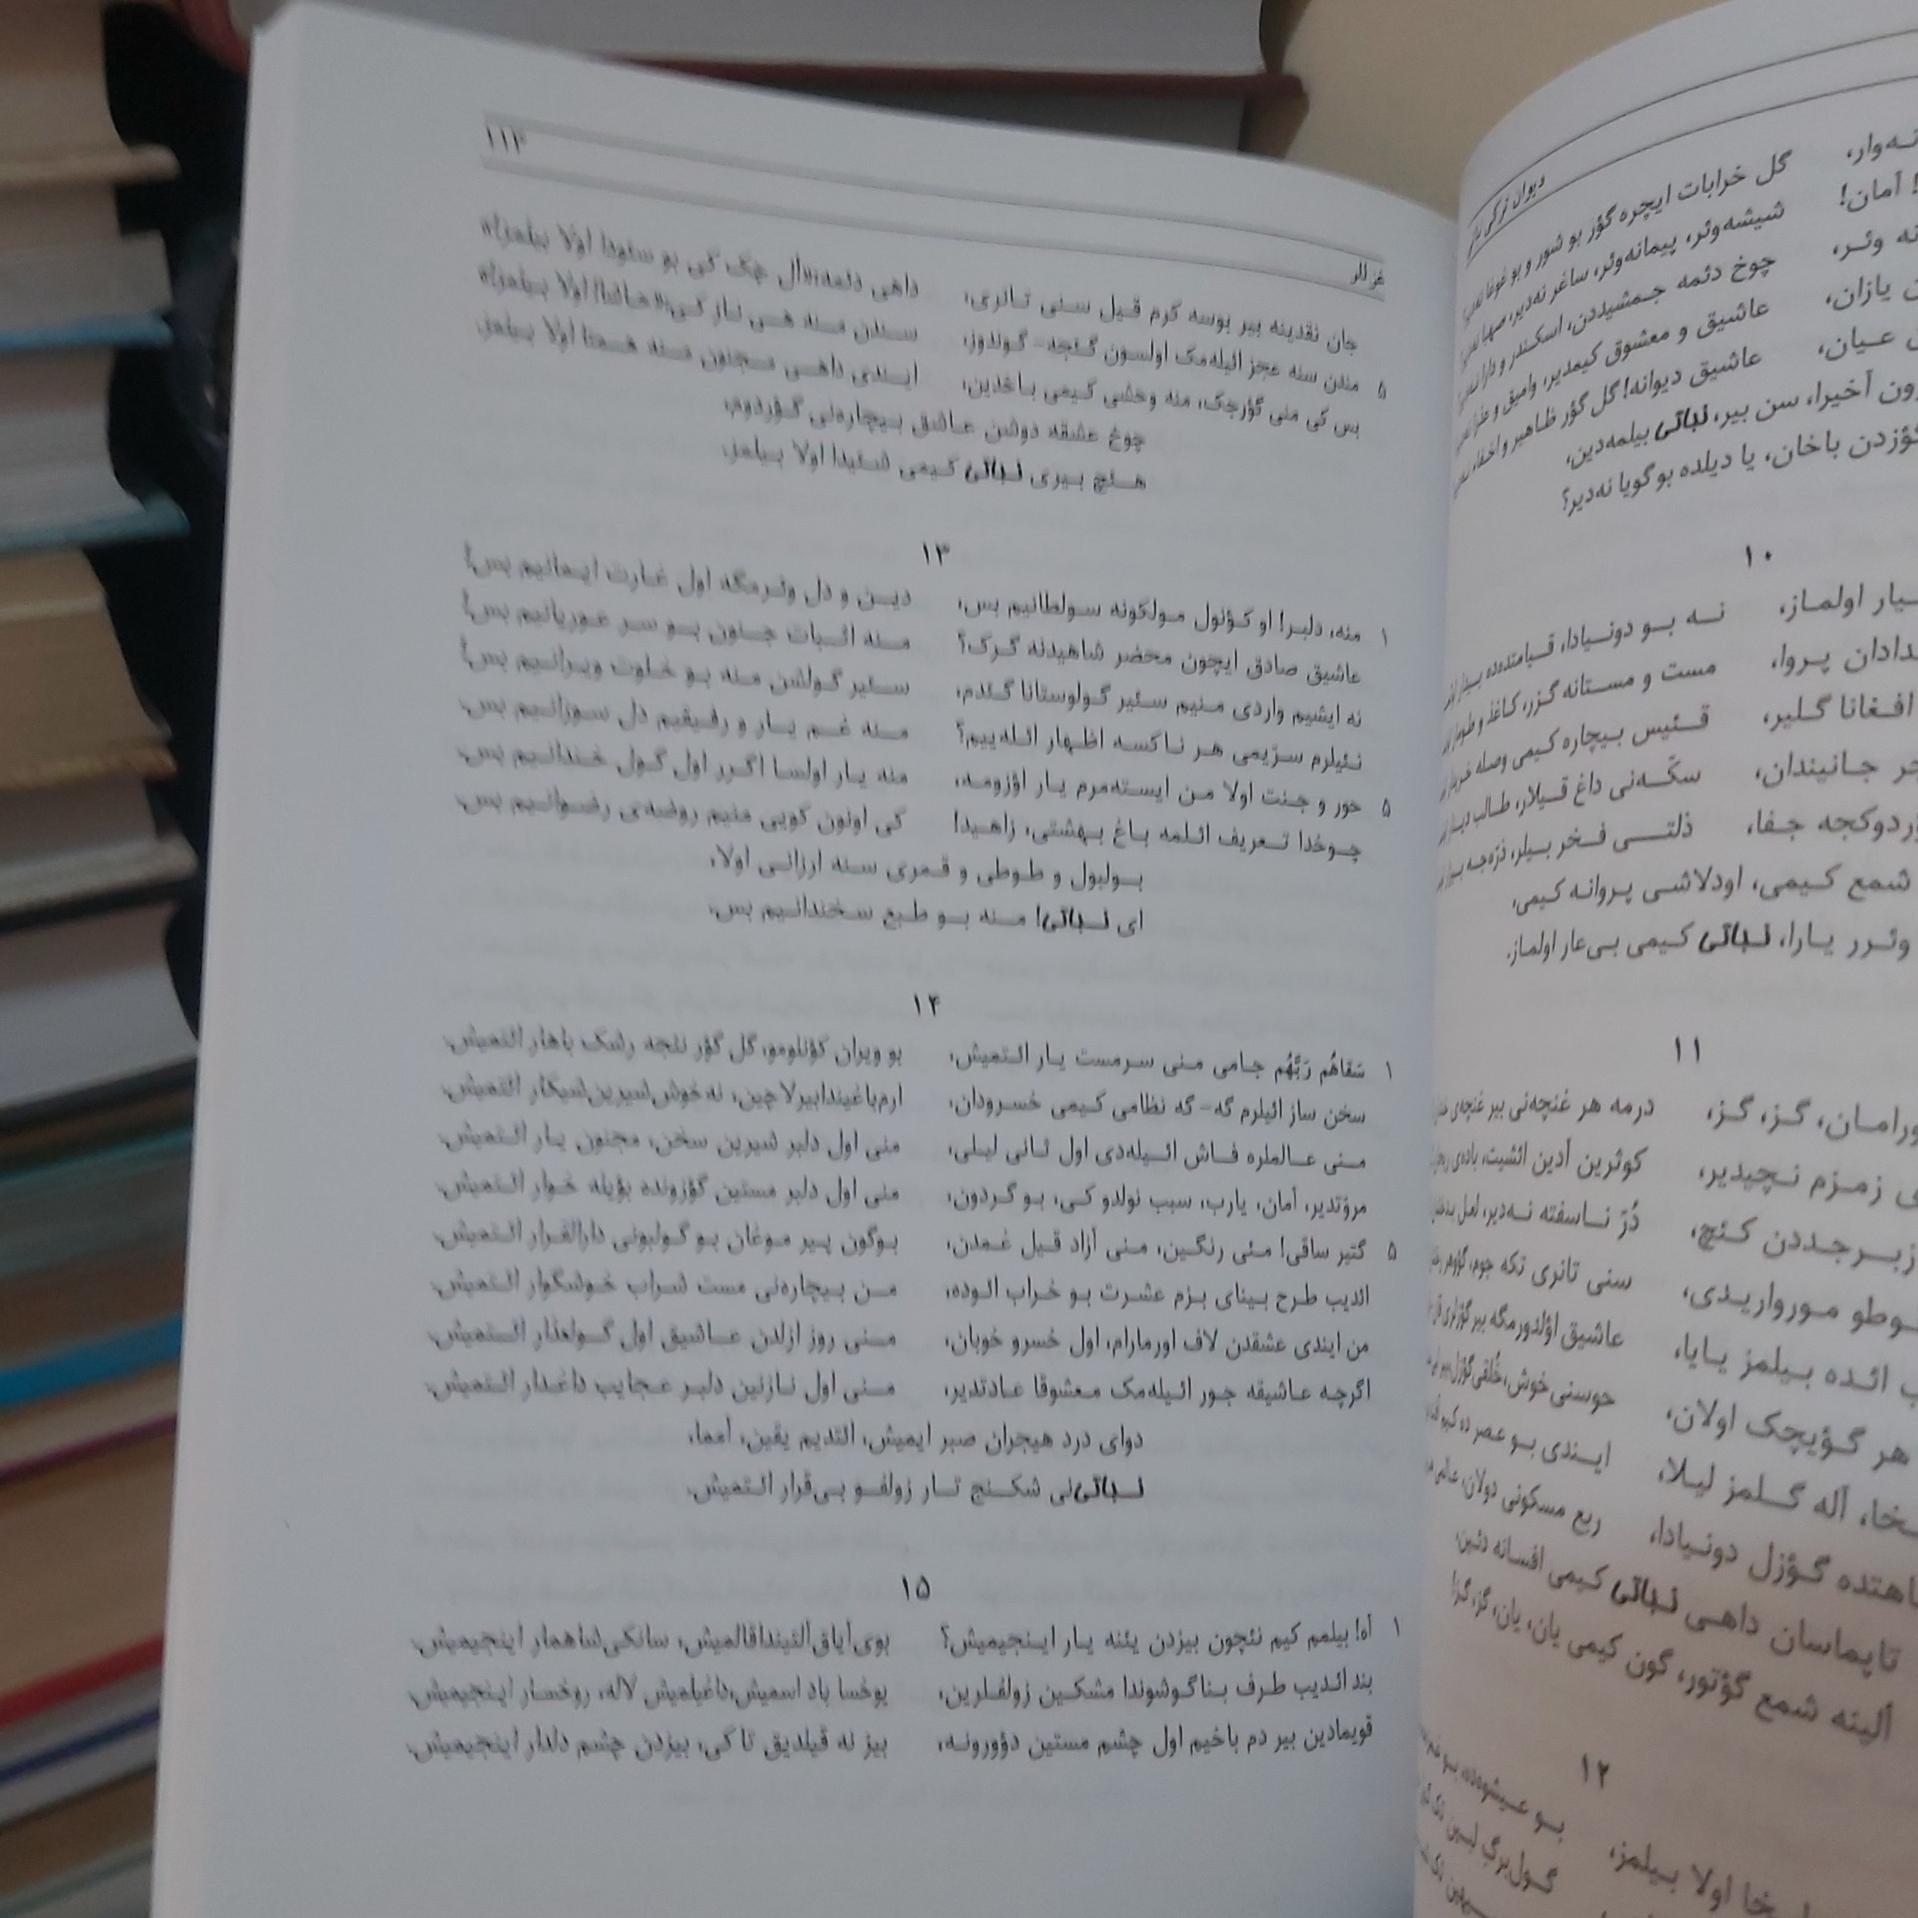 دیوان ترکی
گل خرابات ایچره گؤر بو شور و بو غوغا
شیشه‌وئر، پیمانه‌وئر، ساغر نه‌دیر، صهبا
چوخ دئمه جمشیددن، اسکندر و دارا
عاشیق و معشوق کیمدیر، وامیق و عذرا
عاشیق دیوانه! گل گؤر ظاهیر و اخفا
آخیرا، سن بیر، نباتی بیلمه‌دین،
گؤزدن باخان، یا دیلده بو گویا نه‌دیر؟
۱۰
اولماز، نه بو دونیادا، قیامتده‌ده
پروا، مست و مستانه گزر، کاغذ و طومار
افغانا گلیر، قئیس بیچاره کیمی وصله
جانیندان، سکّه‌نی داغ قیلار، طالب
جفا، ذلتی فخر بیلر، ذرّه‌جه
شمع کیمی، اودلاشی پروانه کیمی،
وئرر یارا، نباتی کیمی بی‌عار اولماز.
۱۱
گز، گز، درمه هر غنچه‌نی بیر غنچه‌ی
زمزم نچیدیر، کوثرین آدین ائشیت، باده‌ی
زبرجددن کئچ، دُرّ ناسفته نه‌دیر، لعل
مورواریدی، سنی تانری تکه جوم، گؤوهر
ائده بیلمز یایا، عاشیق اؤلدورمگه بیر گؤزلری
هر گؤیچک اولان، حوسنی خوش، خُلقی گؤزل
آله گلمز لیلا، ایندی بو عصر ده
گؤزل دونیادا، ربع مسکونی دولان،
تاپماسان داهی نباتی کیمی افسانه دئین،
آلینه شمع گؤتور، گون کیمی یان، یان، گز، گز!
۱۲
اولا بیلمز، بو عیشوه‌ده، بو
گول‌برگ
غزللر ۱۱۳
جان نقدینه بیر بوسه کرم قیل سنی تانری، داهی دئمه «ال چک کی بو سئودا اولا بیلمز!»
۵ مندن سنه عجز ائیله‌مک اولسون گئجه-گوندوز، سندن منه هی ناز کی «حاشا! اولا بیلمز!»
بس کی منی گؤرجک، منه وحشی کیمی باخدین، ایندی داهی مجنون منه همتا اولا بیلمز.
چوخ عشقه دوشن عاشق بیچاره‌نی گؤردوم،
هئچ بیری نباتی کیمی شئیدا اولا بیلمز.
۱۳
۱ منه، دلبر! او کؤنول مولکونه سولطانیم بس، دین و دل وئرمگه اول غارت ایمانیم بس!
عاشیق صادق ایچون محضر شاهیدنه گرک؟ منه اثبات جنون بو سر عوریانیم بس!
نه ایشیم واردی منیم سئیر گولوستانا گئدم، سئیر گولشن منه بو خلوت ویرانیم بس!
نئیلرم سرّیمی هر ناکسه اظهار ائله‌ییم؟ منه غم یار و رفیقیم دل سوزانیم بس.
۵ حور و جنت اولا من ایسته‌مرم یار اؤزومه، منه یار اولسا اگر اول گول خندانیم بس.
چوخدا تعریف ائلمه باغ بهشتی، زاهیدا! کی اونون کویی منیم روضه‌ی رضوانیم بس.
بولبول و طوطی و قمری سنه ارزانی اولا،
ای نباتی! منه بو طبع سخندانیم بس.
۱۴
۱ سَقاهُم رَبَّهُم جامی منی سرمست یار ائتمیش، بو ویران کؤنلومو، گل گؤر نئجه رشک باهار ائتمیش.
سخن ساز ائیلرم گه-گه نظامی کیمی خسرودان، ارم‌باغیندا بیر لاچین، نه خوش شیرین شیکار ائتمیش.
منی عالملره فاش ائیله‌دی اول ثانی لیلی، منی اول دلبر شیرین سخن، مجنون یار ائتمیش.
مروّتدیر، آمان، یارب، سبب نولدو کی، بو گردون، منی اول دلبر مستین گؤزونده بؤیله خوار ائتمیش.
۵ گتیر ساقی! مئی رنگین، منی آزاد قیل غمدن، بوگون پیر موغان بو گولبونی دارالقرار ائتمیش.
ائدیب طرح بینای بزم عشرت بو خراب الوده، من بیچاره‌نی مست شراب خوشگوار ائتمیش.
من ایندی عشقدن لاف اورمارام، اول خسرو خوبان، منی روز ازلدن عاشیق اول گولعذار ائتمیش.
اگرچه عاشیقه جور ائیله‌مک معشوقا عادتدیر، منی اول نازنین دلبر عجایب داغدار ائتمیش.
دوای درد هیجران صبر ایمیش، ائتدیم یقین، امما،
نباتی‌نی شکنج تار زولفو بی‌قرار ائتمیش.
۱۵
۱ آه! بیلمم کیم نئچون بیزدن یئنه یار اینجیمیش؟ بوی ایاق آلتیندا قالمیش، سانکی شاهمار اینجیمیش.
بند ائدیب طرف بناگوشوندا مشکین زولفلرین، یوخسا باد اسمیش، داغیلمیش لاله، روخسار اینجیمیش.
قویمادین بیر دم باخیم اول چشم مستین دؤورونه، بیز نه قیلدیق تا کی، بیزدن چشم دلدار اینجیمیش.